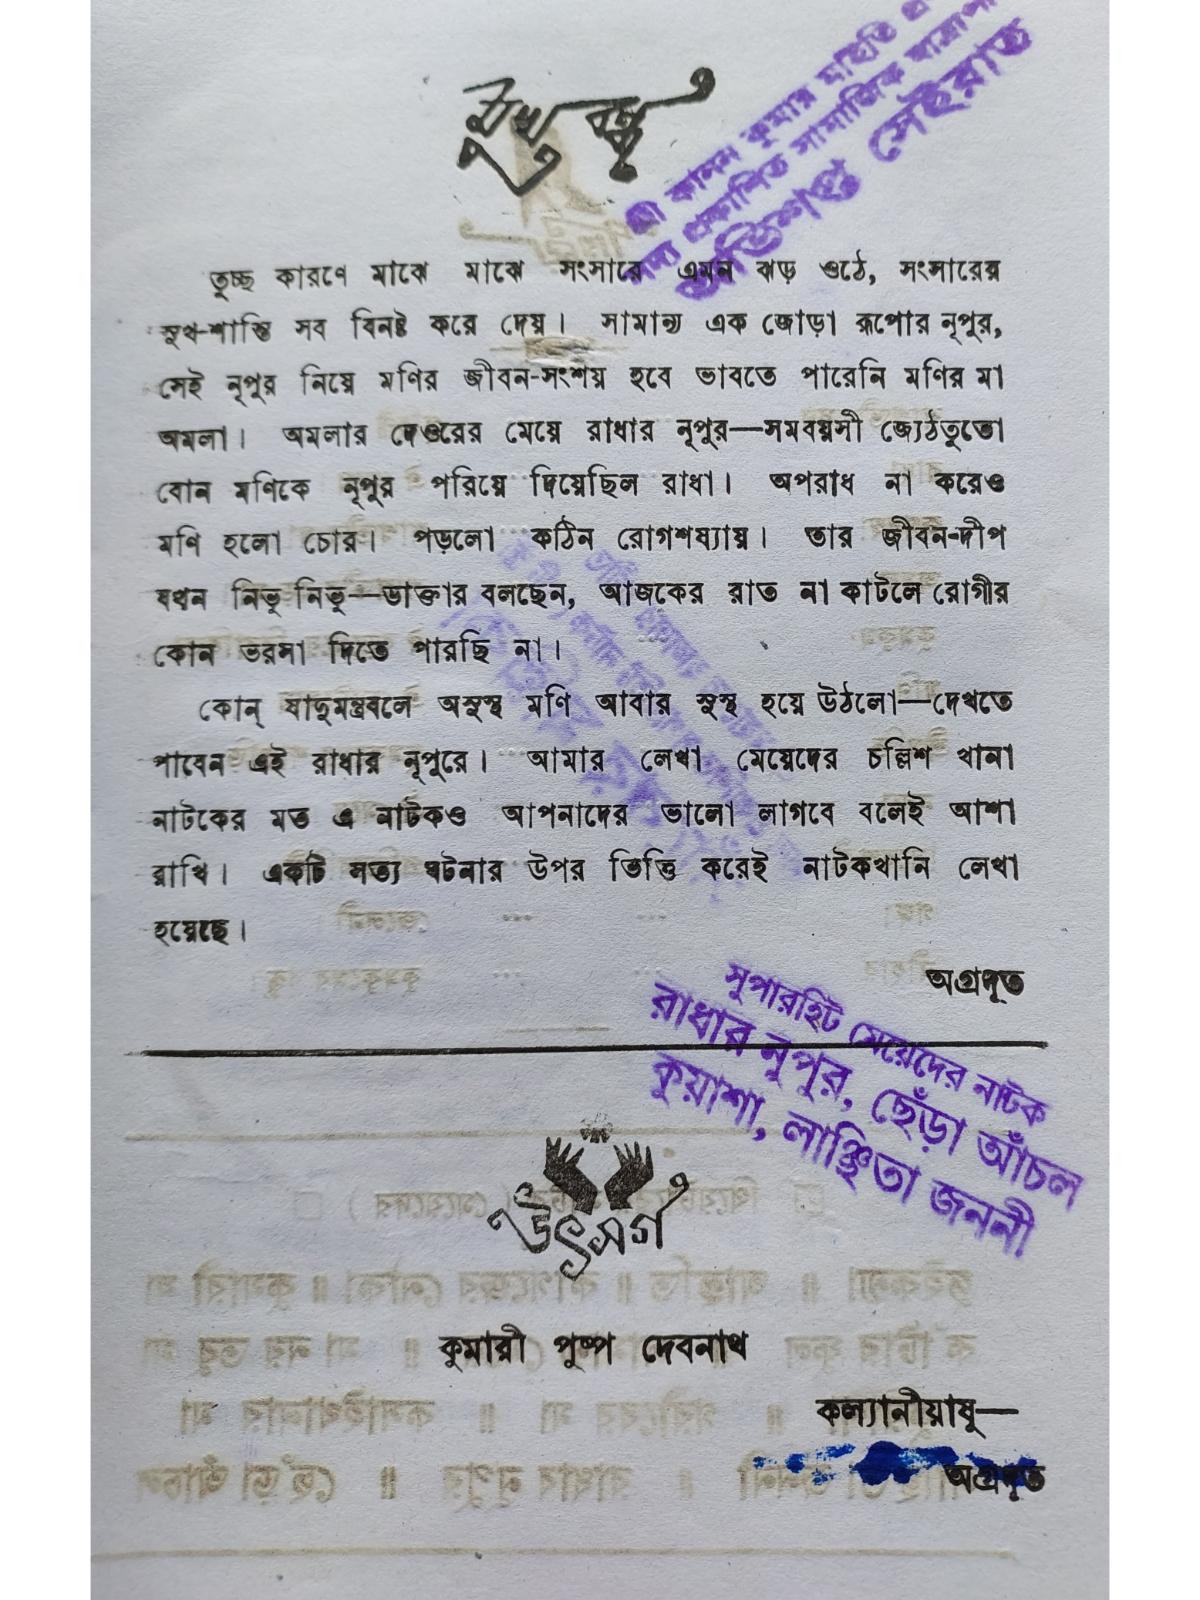 মুখবন্ধ
শ্রী কানন কুমার মাইতি
সদ্য প্রকাশিত সামাজিক যাত্রাপা
অভিশপ্ত সেইরাত
তুচ্ছ কারণে মাঝে মাঝে সংসারে এমন ঝড় ওঠে, সংসারের
সুখ-শান্তি সব বিনষ্ট করে দেয়। সামান্য এক জোড়া রূপোর নূপুর,
সেই নূপুর নিয়ে মণির জীবন-সংশয় হবে ভাবতে পারেনি মণির মা
অমলা। অমলার দেওরের মেয়ে রাধার নূপুর—সমবয়সী জ্যেঠতুতো
বোন মণিকে নূপুর পরিয়ে দিয়েছিল রাধা। অপরাধ না করেও
মণি হলো চোর। পড়লো কঠিন রোগশয্যায়। তার জীবন-দীপ
যখন নিভু নিভু—ডাক্তার বলছেন, আজকের রাত না কাটলে রোগীর
কোন ভরসা দিতে পারছি না।
কোন্ যাদুমন্ত্রবলে অসুস্থ মণি আবার সুস্থ হয়ে উঠলো—দেখতে
পাবেন এই রাধার নূপুরে। আমার লেখা মেয়েদের চল্লিশ খানা
নাটকের মত এ নাটকও আপনাদের ভালো লাগবে বলেই আশা
রাখি। একটি সত্য ঘটনার উপর ভিত্তি করেই নাটকখানি লেখা
হয়েছে।
অগ্রদূত
সুপারহিট মেয়েদের নাটক
রাধার নুপুর, ছেঁড়া আঁচল
কুয়াশা, লাঞ্ছিতা জননী
উৎসর্গ
কুমারী পুষ্প দেবনাথ
কল্যানীয়াষু—
অগ্রদূত